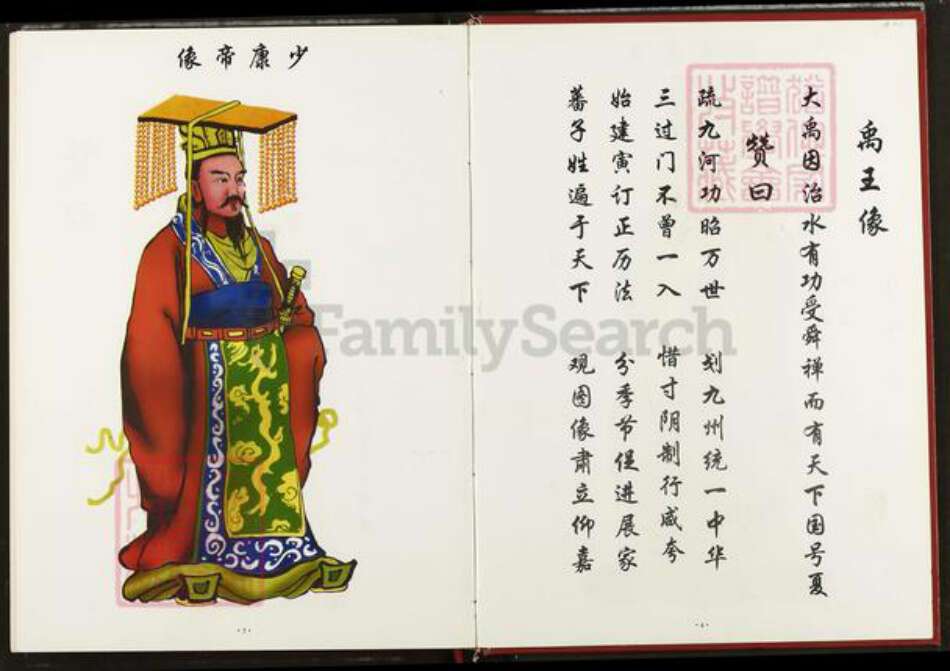 禹王像
大禹因治水有功受舜禅而有天下国号夏
赞曰
疏九河功昭万世 划九州统一中华
三过门不曾一入 惜寸阴制行咸夸
始建寅订正历法 分季节促进展家
蕃子姓遍于天下 观图像肃立仰嘉
·6·
少康帝像
·7·
FamilySearch